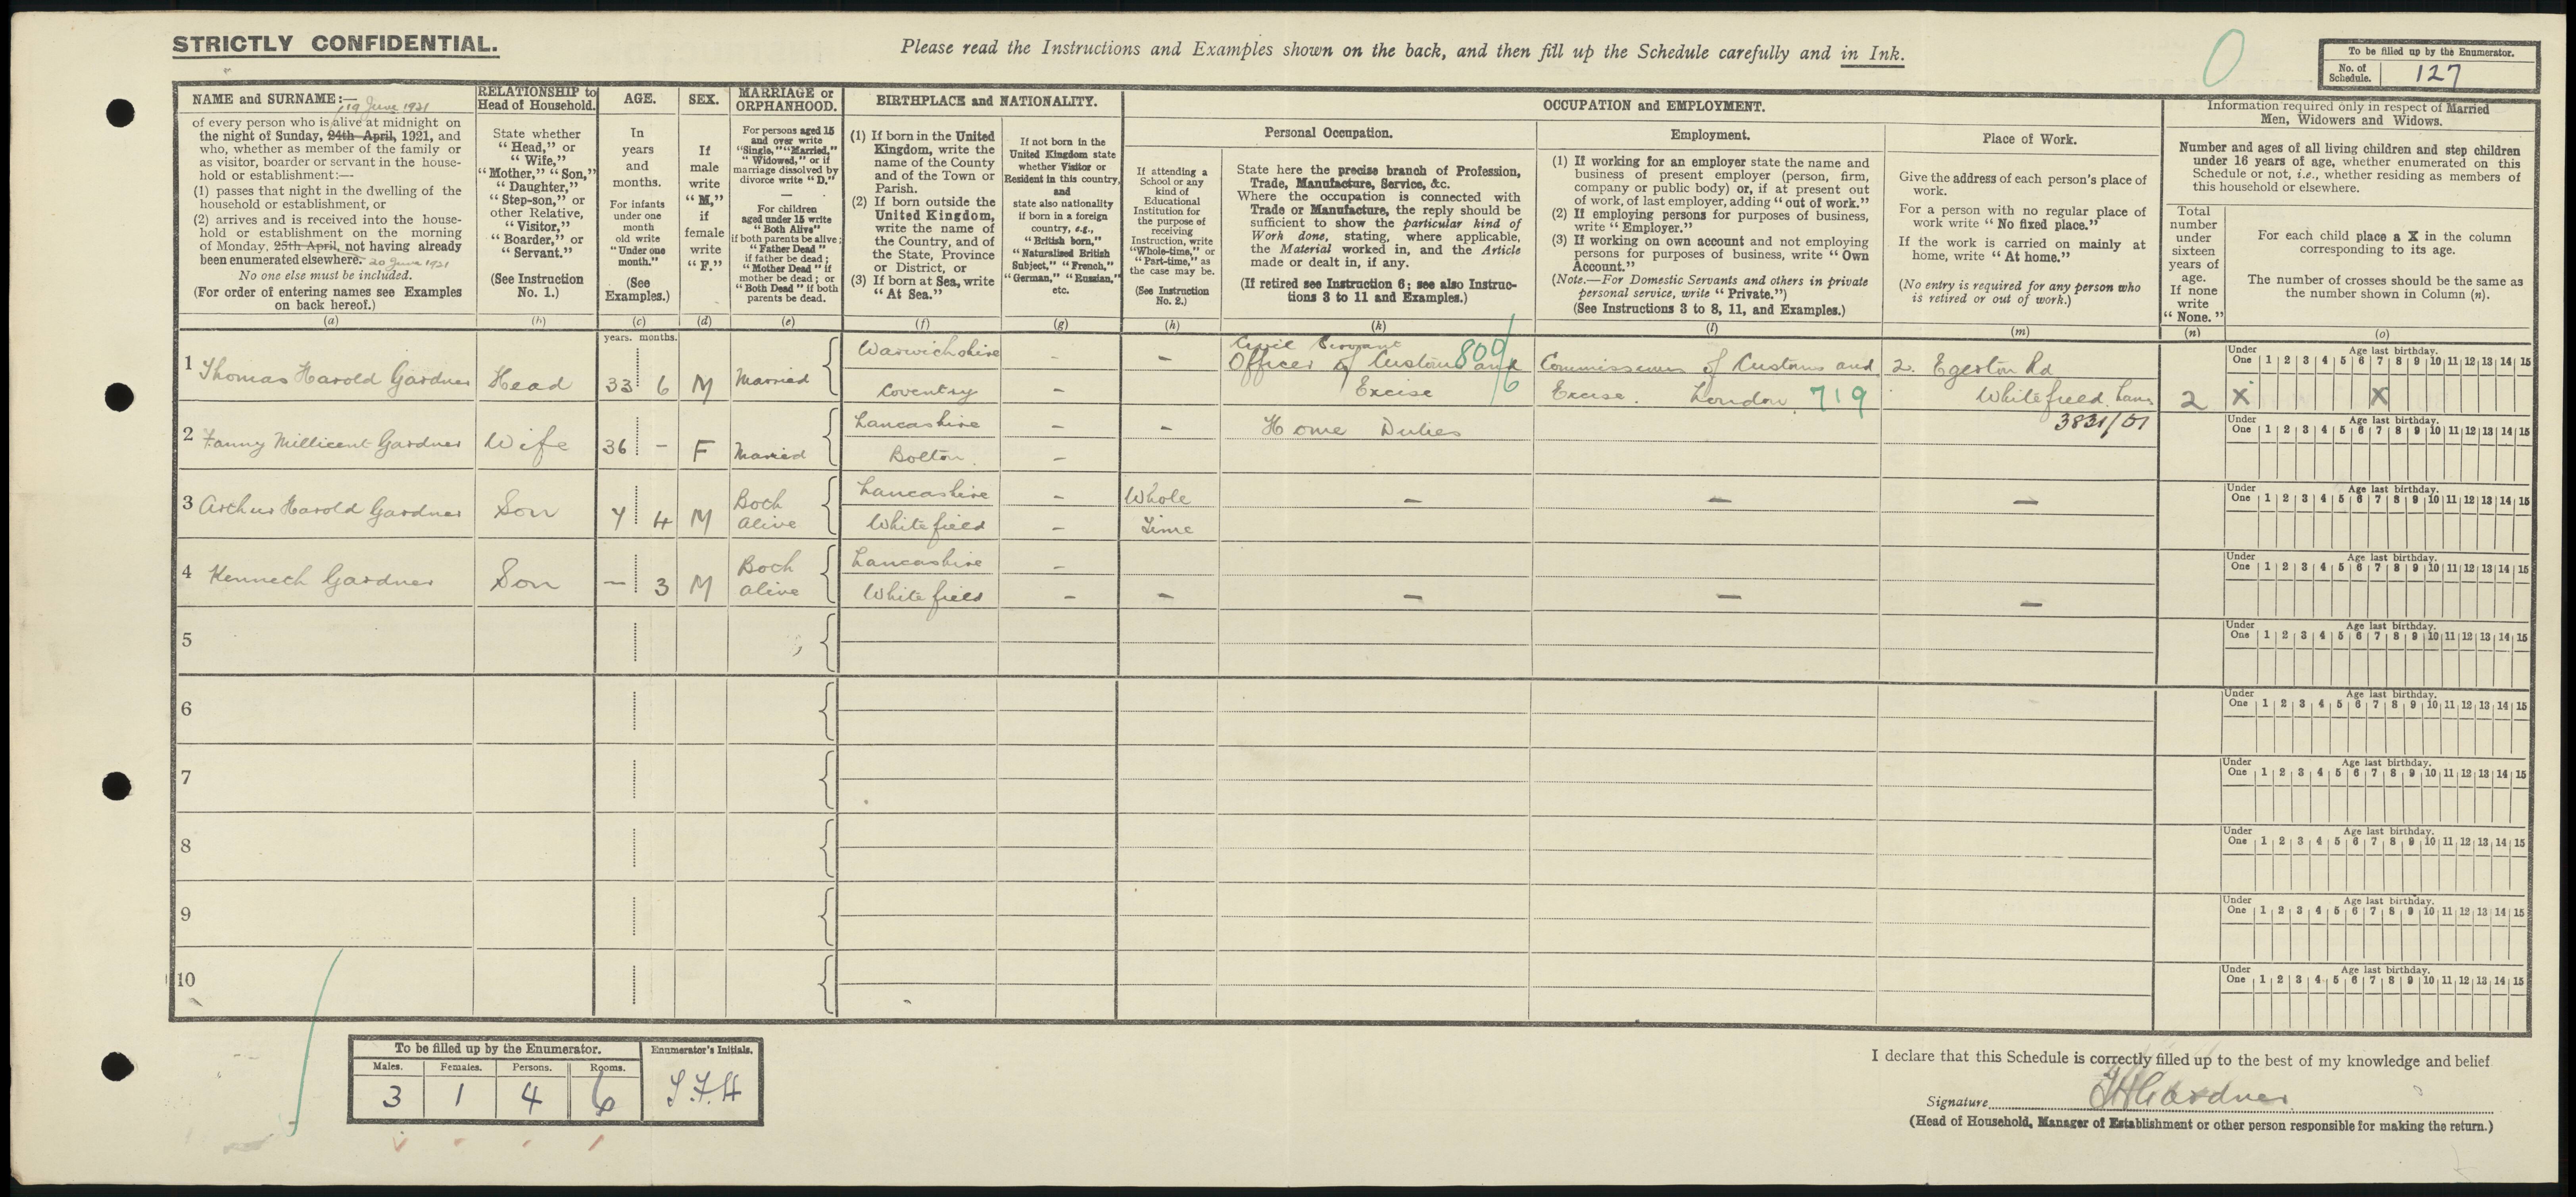 STRICTLY CONFIDENTIAL.
Please read the Instructions and Examples shown on the back, and then fill up the Schedule carefully and in Ink.
0
To be filled up by the Enumerator.
No. of Schedule. 127
NAME and SURNAME:—
19 June 1921
of every person who is alive at midnight on
the night of Sunday, 24th April, 1921, and
who, whether as member of the family or
as visitor, boarder or servant in the house-
hold or establishment:—
(1) passes that night in the dwelling of the
household or establishment, or
(2) arrives and is received into the house-
hold or establishment on the morning
of Monday, 25th April, not having already
been enumerated elsewhere. 20 June 1921
No one else must be included.
(For order of entering names see Examples
on back hereof.)
(a)
RELATIONSHIP to
Head of Household.
State whether
"Head," or
"Wife,"
"Mother," "Son,"
"Daughter,"
"Step-son," or
other Relative,
"Visitor,"
"Boarder," or
"Servant."
(See Instruction
No. 1.)
(b)
AGE.
In
years
and
months.
For infants
under one
month
old write
"Under one
month."
(See
Examples.)
(c)
years. months.
SEX.
If
male
write
"M,"
if
female
write
"F."
(d)
MARRIAGE or
ORPHANHOOD.
For persons aged 15
and over write
"Single," "Married,"
"Widowed," or if
marriage dissolved by
divorce write "D."
—
For children
aged under 15 write
"Both Alive"
if both parents be alive;
"Father Dead"
if father be dead;
"Mother Dead" if
mother be dead; or
"Both Dead" if both
parents be dead.
(e)
BIRTHPLACE and NATIONALITY.
(1) If born in the United
Kingdom, write the
name of the County
and of the Town or
Parish.
(2) If born outside the
United Kingdom,
write the name of
the Country, and of
the State, Province
or District, or
(3) If born at Sea, write
"At Sea."
(f)
If not born in the
United Kingdom state
whether Visitor or
Resident in this country,
and
state also nationality
if born in a foreign
country, e.g.,
"British born,"
"Naturalised British
Subject," "French,"
"German," "Russian,"
etc.
(g)
OCCUPATION and EMPLOYMENT.
Personal Occupation.
If attending a
School or any
kind of
Educational
Institution for
the purpose of
receiving
Instruction, write
"Whole-time," or
"Part-time," as
the case may be.
(See Instruction
No. 2.)
(h)
State here the precise branch of Profession,
Trade, Manufacture, Service, &c.
Where the occupation is connected with
Trade or Manufacture, the reply should be
sufficient to show the particular kind of
Work done, stating, where applicable,
the Material worked in, and the Article
made or dealt in, if any.
(If retired see Instruction 6; see also Instruc-
tions 3 to 11 and Examples.)
(k)
Employment.
(1) If working for an employer state the name and
business of present employer (person, firm,
company or public body) or, if at present out
of work, of last employer, adding "out of work."
(2) If employing persons for purposes of business,
write "Employer."
(3) If working on own account and not employing
persons for purposes of business, write "Own
Account."
(Note.—For Domestic Servants and others in private
personal service, write "Private.")
(See Instructions 3 to 8, 11, and Examples.)
(l)
Place of Work.
Give the address of each person's place of
work.
For a person with no regular place of
work write "No fixed place."
If the work is carried on mainly at
home, write "At home."
(No entry is required for any person who
is retired or out of work.)
(m)
Information required only in respect of Married
Men, Widowers and Widows.
Number and ages of all living children and step children
under 16 years of age, whether enumerated on this
Schedule or not, i.e., whether residing as members of
this household or elsewhere.
Total
number
under
sixteen
years of
age.
If none
write
"None."
(n)
For each child place a X in the column
corresponding to its age.
The number of crosses should be the same as
the number shown in Column (n).
(o)
1 Thomas Harold Gardner Head 33 6 M Married Warwickshire Coventry — — — Civil Servant Officer of Customs and Excise 800/6 Commissioners of Customs and Excise. London. 719 2. Egerton Rd Whitefield. Lancs 2 X X
Under One 1 2 3 4 5 6 7 8 9 10 11 12 13 14 15 Age last birthday.
3831/01
2 Fanny Millicent Gardner Wife 36 — F Married Lancashire Bolton. — — — Home Duties
Under One 1 2 3 4 5 6 7 8 9 10 11 12 13 14 15 Age last birthday.
3 Arthur Harold Gardner Son 7 4 M Both Alive Lancashire Whitefield — — Whole Time — — —
Under One 1 2 3 4 5 6 7 8 9 10 11 12 13 14 15 Age last birthday.
4 Kenneth Gardner Son — 3 M Both alive Lancashire Whitefield — — — — — —
Under One 1 2 3 4 5 6 7 8 9 10 11 12 13 14 15 Age last birthday.
5
Under One 1 2 3 4 5 6 7 8 9 10 11 12 13 14 15 Age last birthday.
6
Under One 1 2 3 4 5 6 7 8 9 10 11 12 13 14 15 Age last birthday.
7
Under One 1 2 3 4 5 6 7 8 9 10 11 12 13 14 15 Age last birthday.
8
Under One 1 2 3 4 5 6 7 8 9 10 11 12 13 14 15 Age last birthday.
9
Under One 1 2 3 4 5 6 7 8 9 10 11 12 13 14 15 Age last birthday.
10
Under One 1 2 3 4 5 6 7 8 9 10 11 12 13 14 15 Age last birthday.
To be filled up by the Enumerator.
Males. Females. Persons. Rooms.
3 1 4 6
Enumerator's Initials.
I declare that this Schedule is correctly filled up to the best of my knowledge and belief
Signature THGardner
(Head of Household, Manager of Establishment or other person responsible for making the return.)